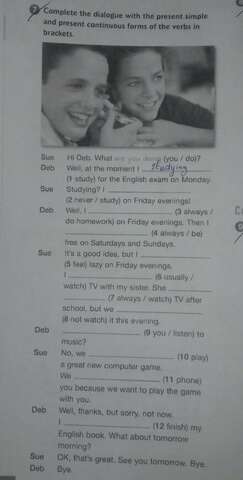 7 Complete the dialogue with the present simple
and present continuous forms of the verbs in
brackets.
Sue Hi Deb. What are you doing (you / do)?
Deb Well, at the moment I studying
(1 study) for the English exam on Monday.
Sue Studying? I
(2 never / study) on Friday evenings!
Deb Well, I (3 always /
do homework) on Friday evenings. Then I
(4 always / be)
free on Saturdays and Sundays.
Sue It's a good idea, but I
(5 feel) lazy on Friday evenings.
I (6 usually /
watch) TV with my sister. She
(7 always / watch) TV after
school, but we
(8 not watch) it this evening.
Deb (9 you / listen) to
music?
Sue No, we (10 play)
a great new computer game.
We (11 phone)
you because we want to play the game
with you.
Deb Well, thanks, but sorry, not now.
I (12 finish) my
English book. What about tomorrow
morning?
Sue OK, that's great. See you tomorrow. Bye.
Deb Bye.